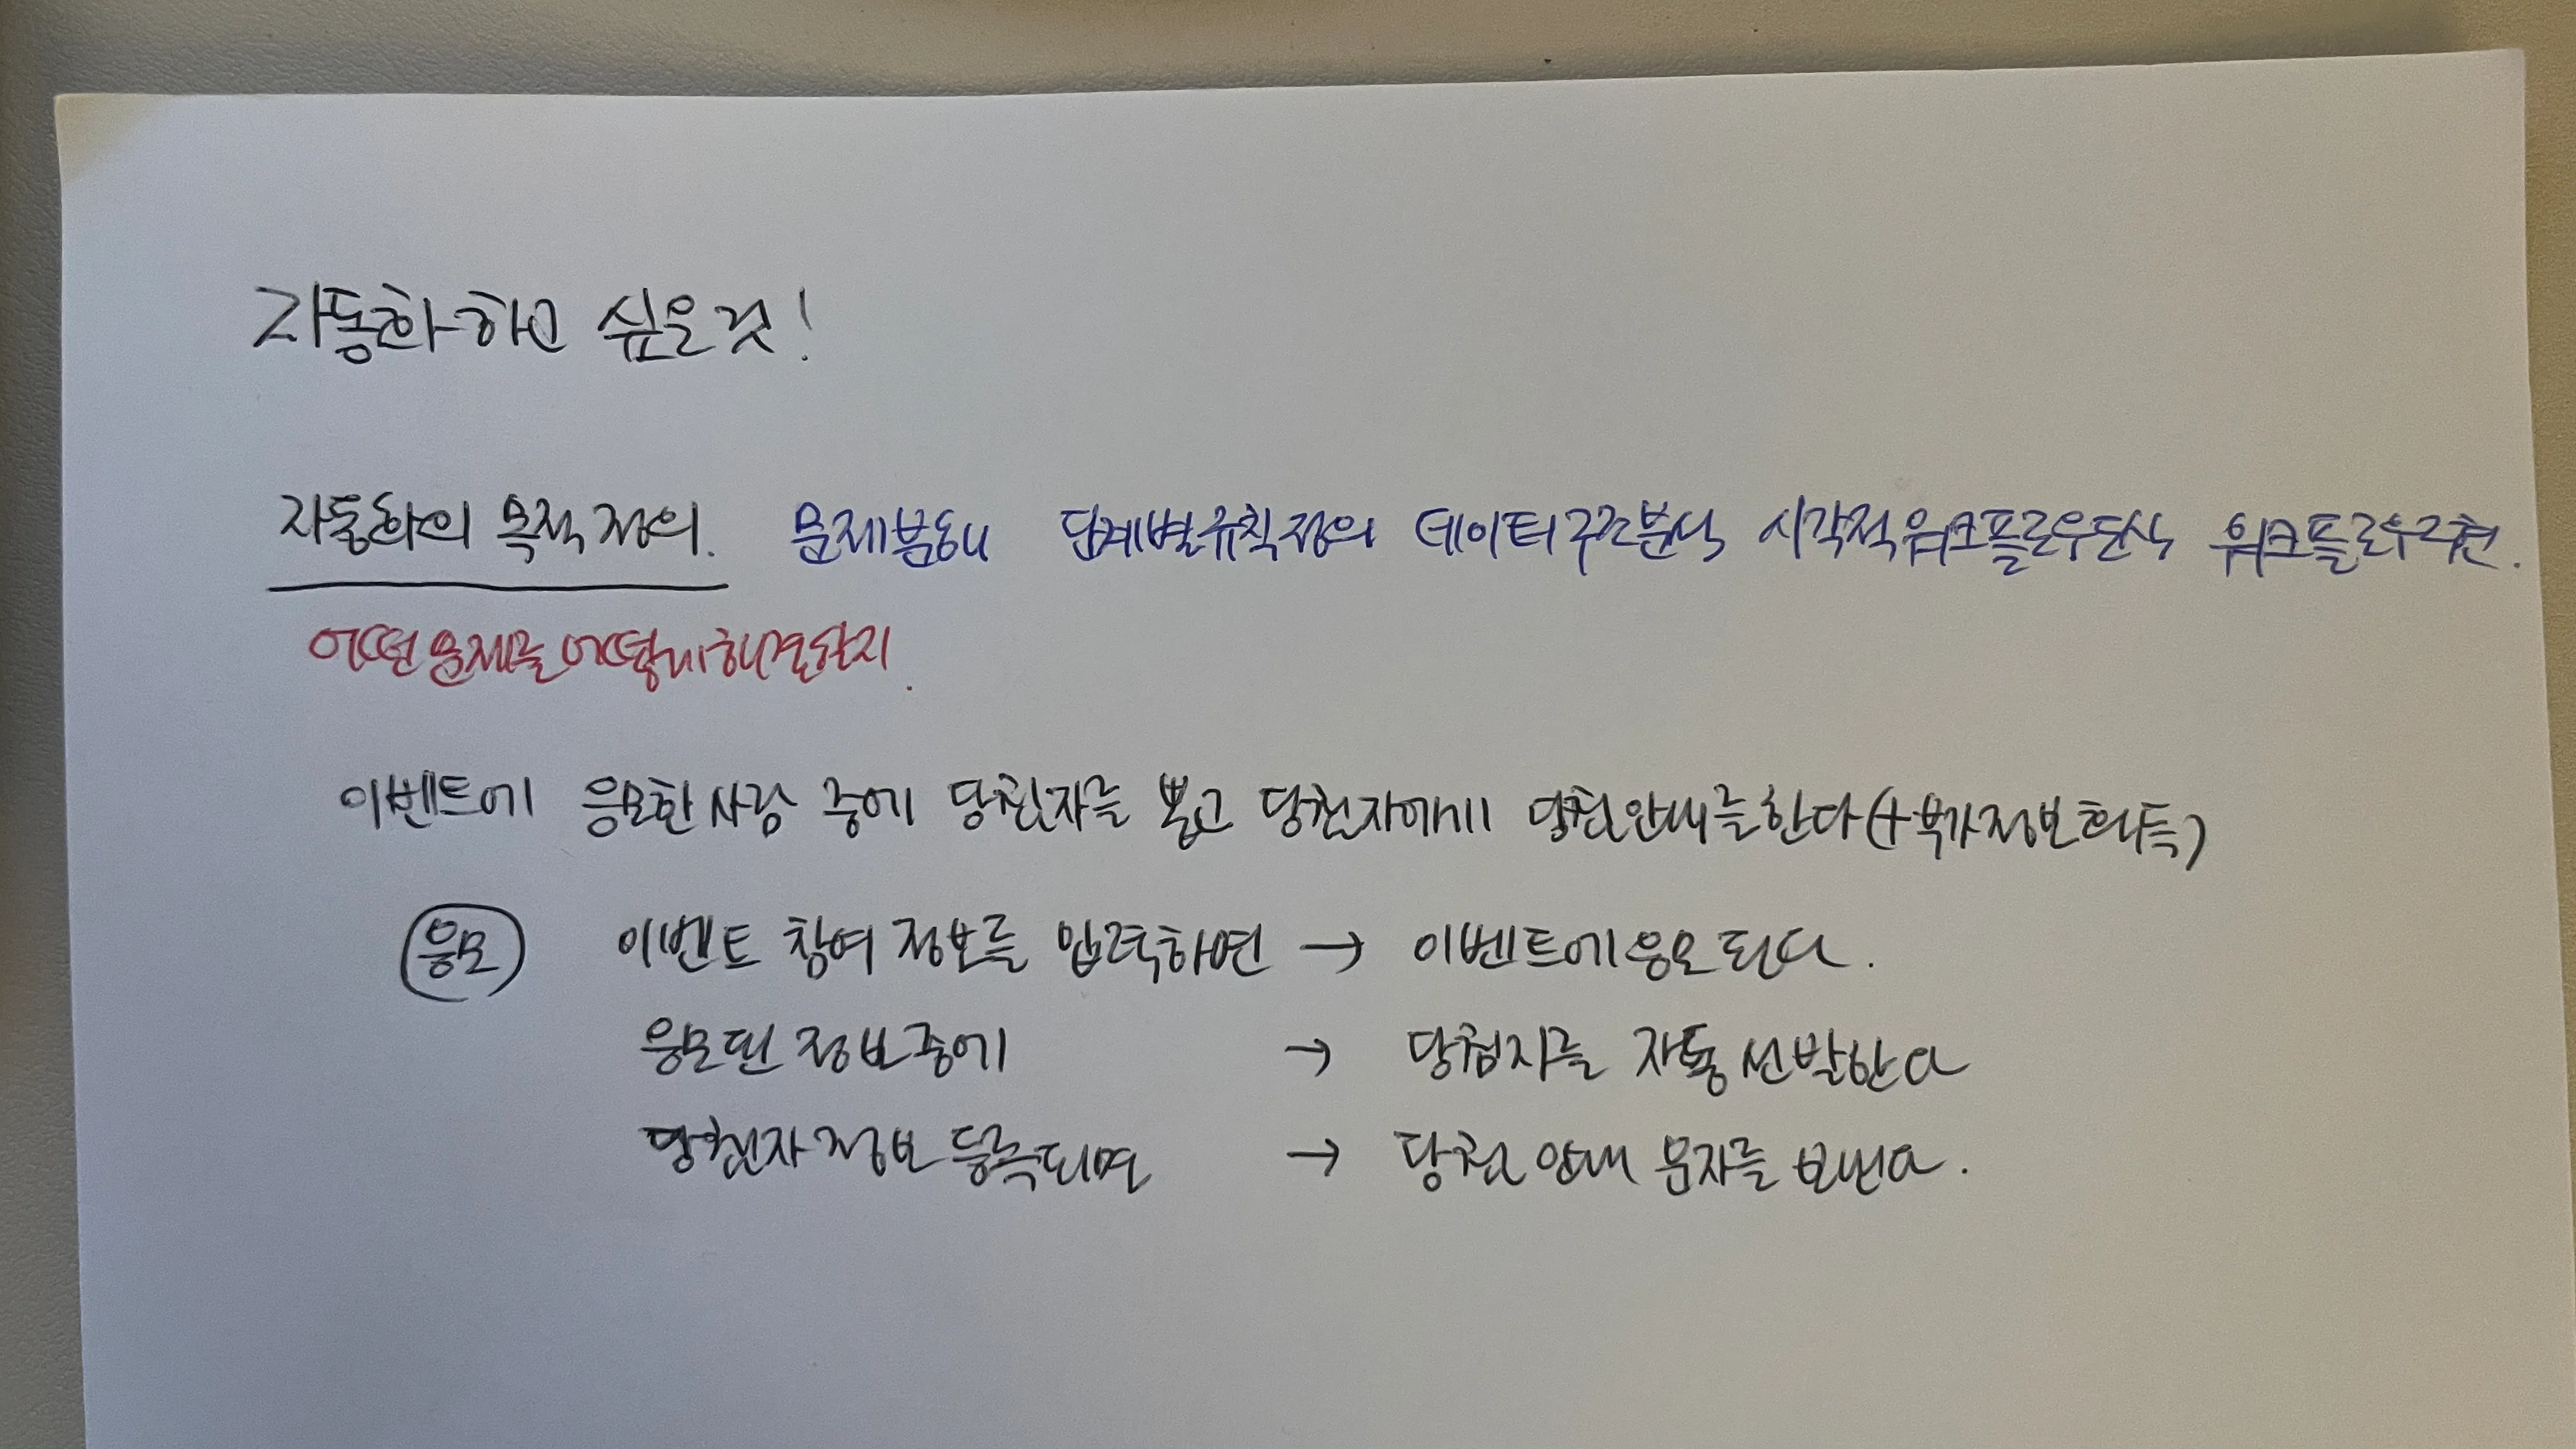 자동화하고 싶은것!
자동화의 목적 정의. 문제분해 단계별규칙정의 데이터구조분석 시각적워크플로우도식 워크플로우구현.
어떤문제를 어떻게해결할지.
이벤트에 응모한사람 중에 당첨자를 뽑고 당첨자에게 당첨안내를한다(+부가정보획득)
응모 이벤트 참여 정보를 입력하면 → 이벤트에응모된다.
응모된 정보중에 → 당첨자를 자동선발한다
당첨자정보 등록되면 → 당첨 안내 문자를 보낸다.